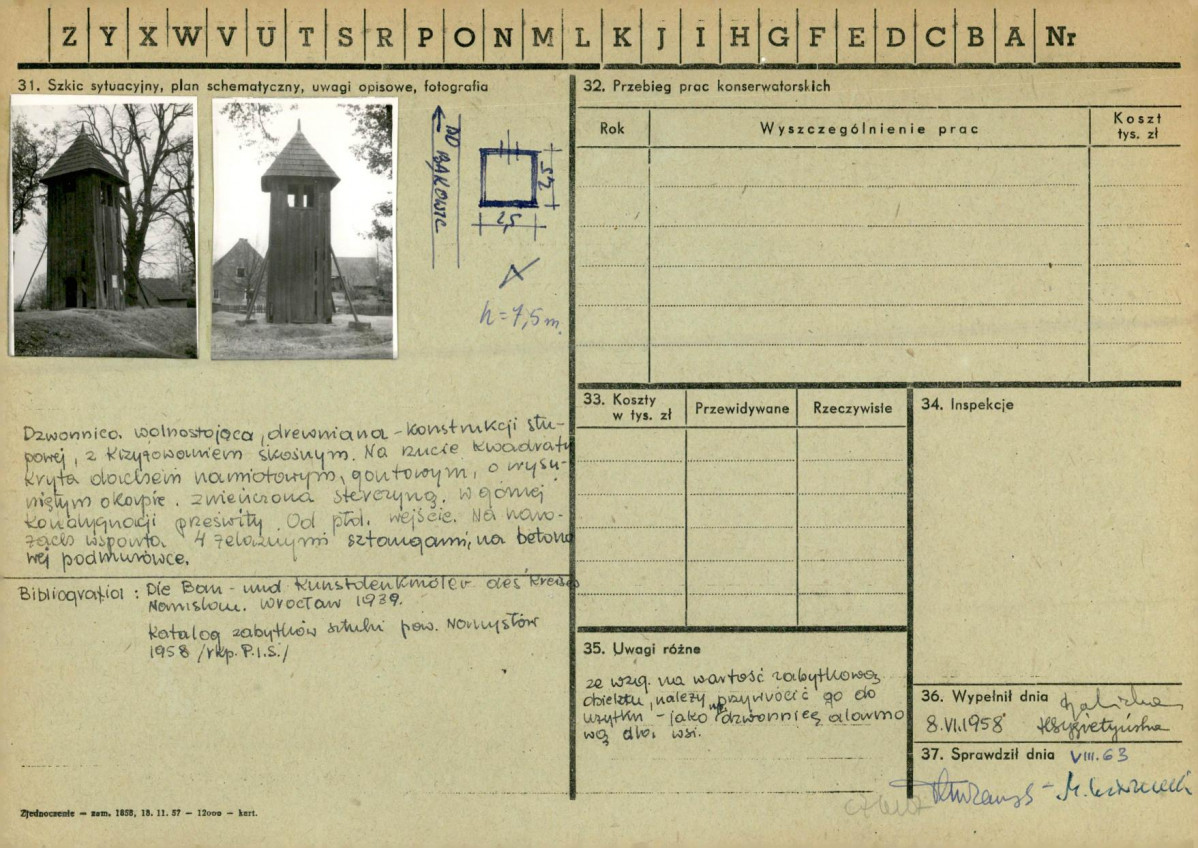 Z Y X W V U T S R P O N M L K J I H G F E D C B A Nr
31. Szkic sytuacyjny, plan schematyczny, uwagi opisowe, fotografia
DO BĄKOWIC
2,5
2,5
h = 7,5 m.
Dzwonnica wolnostojąca, drewniana - konstrukcji słu-
powej, z krzyżowaniem skośnym. Na rzucie kwadratu
kryta dachem namiotowym, gontowym, o wysu-
niętym okapie. zwieńczona sterczyną. w górnej
kondygnacji prześwity. Od płd. wejście. Na naro-
żach wsparta 4 żelaznymi sztangami, na betono
wej podmurówce.
Bibliografia: Die Bau- und Kunstdenkmäler des Kreises
Namslau. Wrocław 1939.
Katalog zabytków sztuki pow. Namysłów
1958 /rkp. P.I.S./
Zjednoczenie — zam. 1858, 18. 11. 57 — 12000 — kart.
32. Przebieg prac konserwatorskich
Rok Wyszczególnienie prac Koszt tys. zł
33. Koszty w tys. zł Przewidywane Rzeczywiste
34. Inspekcje
35. Uwagi różne
ze wzgl. na wartość zabytkową
obiektu, należy przywrócić go do
użytku - jako dzwonnicę alarmo
wą dla wsi.
36. Wypełnił dnia
8.VI.1958
37. Sprawdził dnia VIII.63